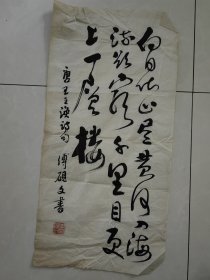 白日依山尽黄河入海
流欲穷千里目更
上一層楼
唐王之涣诗句 傅文書